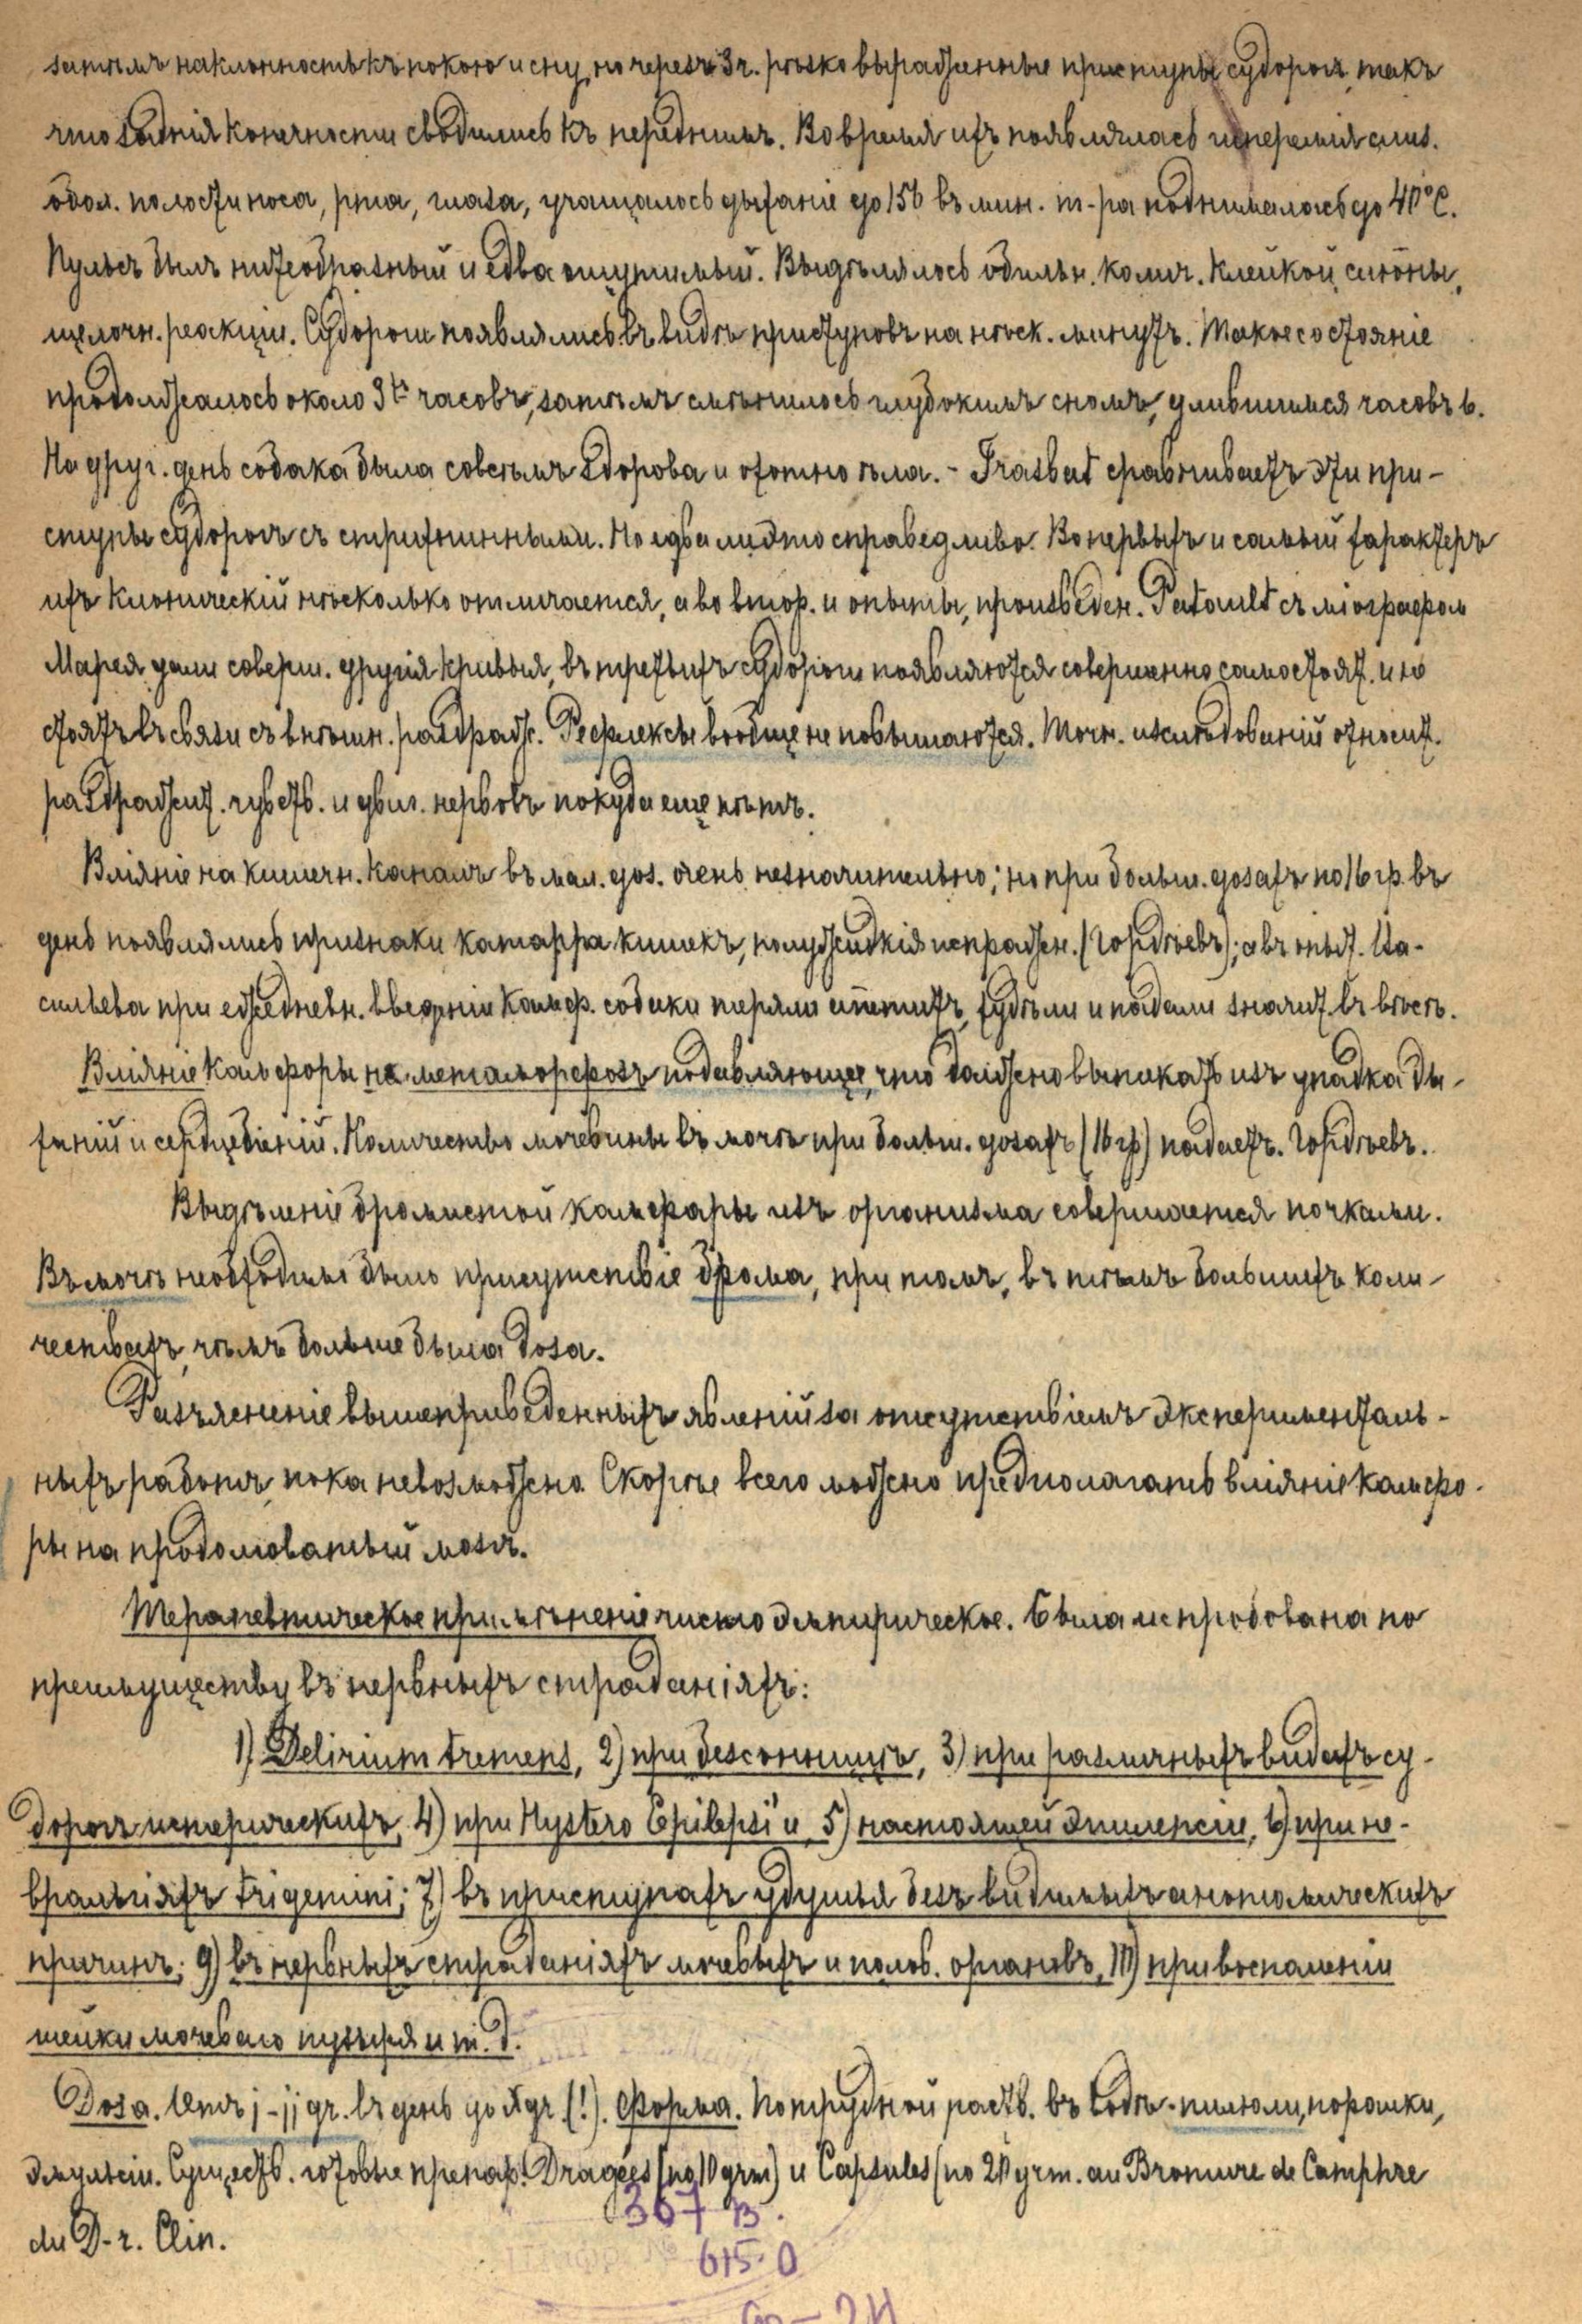 затѣмъ наклонность къ покою и сну, но черезъ 3 ч. рѣзко выраженные приступы судорогъ, такъ
что заднія конечности сводились къ переднимъ. Во время ихъ появлялась гиперемія слиз.
обол. полости носа, рта, глаза, учащалось дыханіе до 156 въ мин. т-ра поднималась до 40°С.
Пульсъ былъ нитеобразный и едва ощутимый. Выдѣлялось обильн. колич. клейкой слюны,
щелочн. реакціи. Судороги появлялись въ видѣ приступовъ на нѣск. минутъ. Такое состояніе
продолжалось около 3хъ часовъ, затѣмъ смѣнилось глубокимъ сномъ, длившимся часовъ 6.
На друг. день собака была совсѣмъ здорова и охотно ѣла. - Trasbut сравниваетъ эти при-
ступы судорогъ съ стрихнинными. Но едва ли это справедливо. Во первыхъ и самый характеръ
ихъ клоническій нѣсколько отличается, а во втор. и опыты, произведен. Patault съ міографом
Марея дали соверш. другія кривыя, въ третьихъ судороги появляются совершенно самостоят. и не
стоятъ въ связи съ внѣшн. раздраж. Рефлексы вообще не повышаются. Точн. изслѣдованій относит.
раздражит. чувств. и двиг. нервовъ покуда еще нѣтъ.
Вліяніе на кишечн. каналъ въ мал. доз. очень незначительно; но при больш. дозахъ по 16 гр. въ
день появлялись признаки катарра кишекъ, полужидкія испражн. (Гордѣевъ); а въ опыт. Ва-
сильева при ежедневн. введеніи камф. собаки теряли аппетитъ, худѣли и падали значит. въ вѣсѣ.
Вліяніе камфоры на метаморфозъ подавляющее, что должно вытекать изъ упадка ды-
ханій и сердцебіеній. Количество мочевины въ мочѣ при больш. дозахъ (16 гр) падаетъ. Гордѣевъ.
Выдѣленіе бромистой камфары изъ организма совершается почками.
Въ мочѣ необходимо было присутствіе брома, при томъ, въ тѣмъ большихъ коли-
чествахъ, чѣмъ больше была доза.
Разъясненіе вышеприведенныхъ явленій за отсутствіемъ эксперименталь-
ныхъ работъ, пока невозможно. Скорѣе всего можно предполагать вліяніе камфо-
ры на продолговатый мозгъ.
Терапевтическое примѣненіе чисто эмпирическое. Была испробована по
преимуществу въ нервныхъ страданіяхъ:
1) Delirium tremens, 2) при безсонницѣ, 3) при различныхъ видахъ су-
дорогъ истерическихъ, 4) при Hystero Epilepsi'и, 5) настоящей эпилепсіи, 6) при не-
вральгіяхъ trigemini; 7) въ приступахъ удушья безъ видимыхъ анатомическихъ
причинъ; 9) въ нервныхъ страданіяхъ мочевыхъ и полов. органовъ, 10) при воспаленіи
шейки мочеваго пузыря и т. д.
Доза. Отъ j-jj gr. въ день до gr. (!). Форма. По трудной раств. въ водѣ - пилюли, порошки,
эмульсіи. Существ. готовые препар: Dragées (по 10 grm) и Capsules (по 20 grm. au Bromure de Camphre
du D-r. Clin.
367 в.
615.0